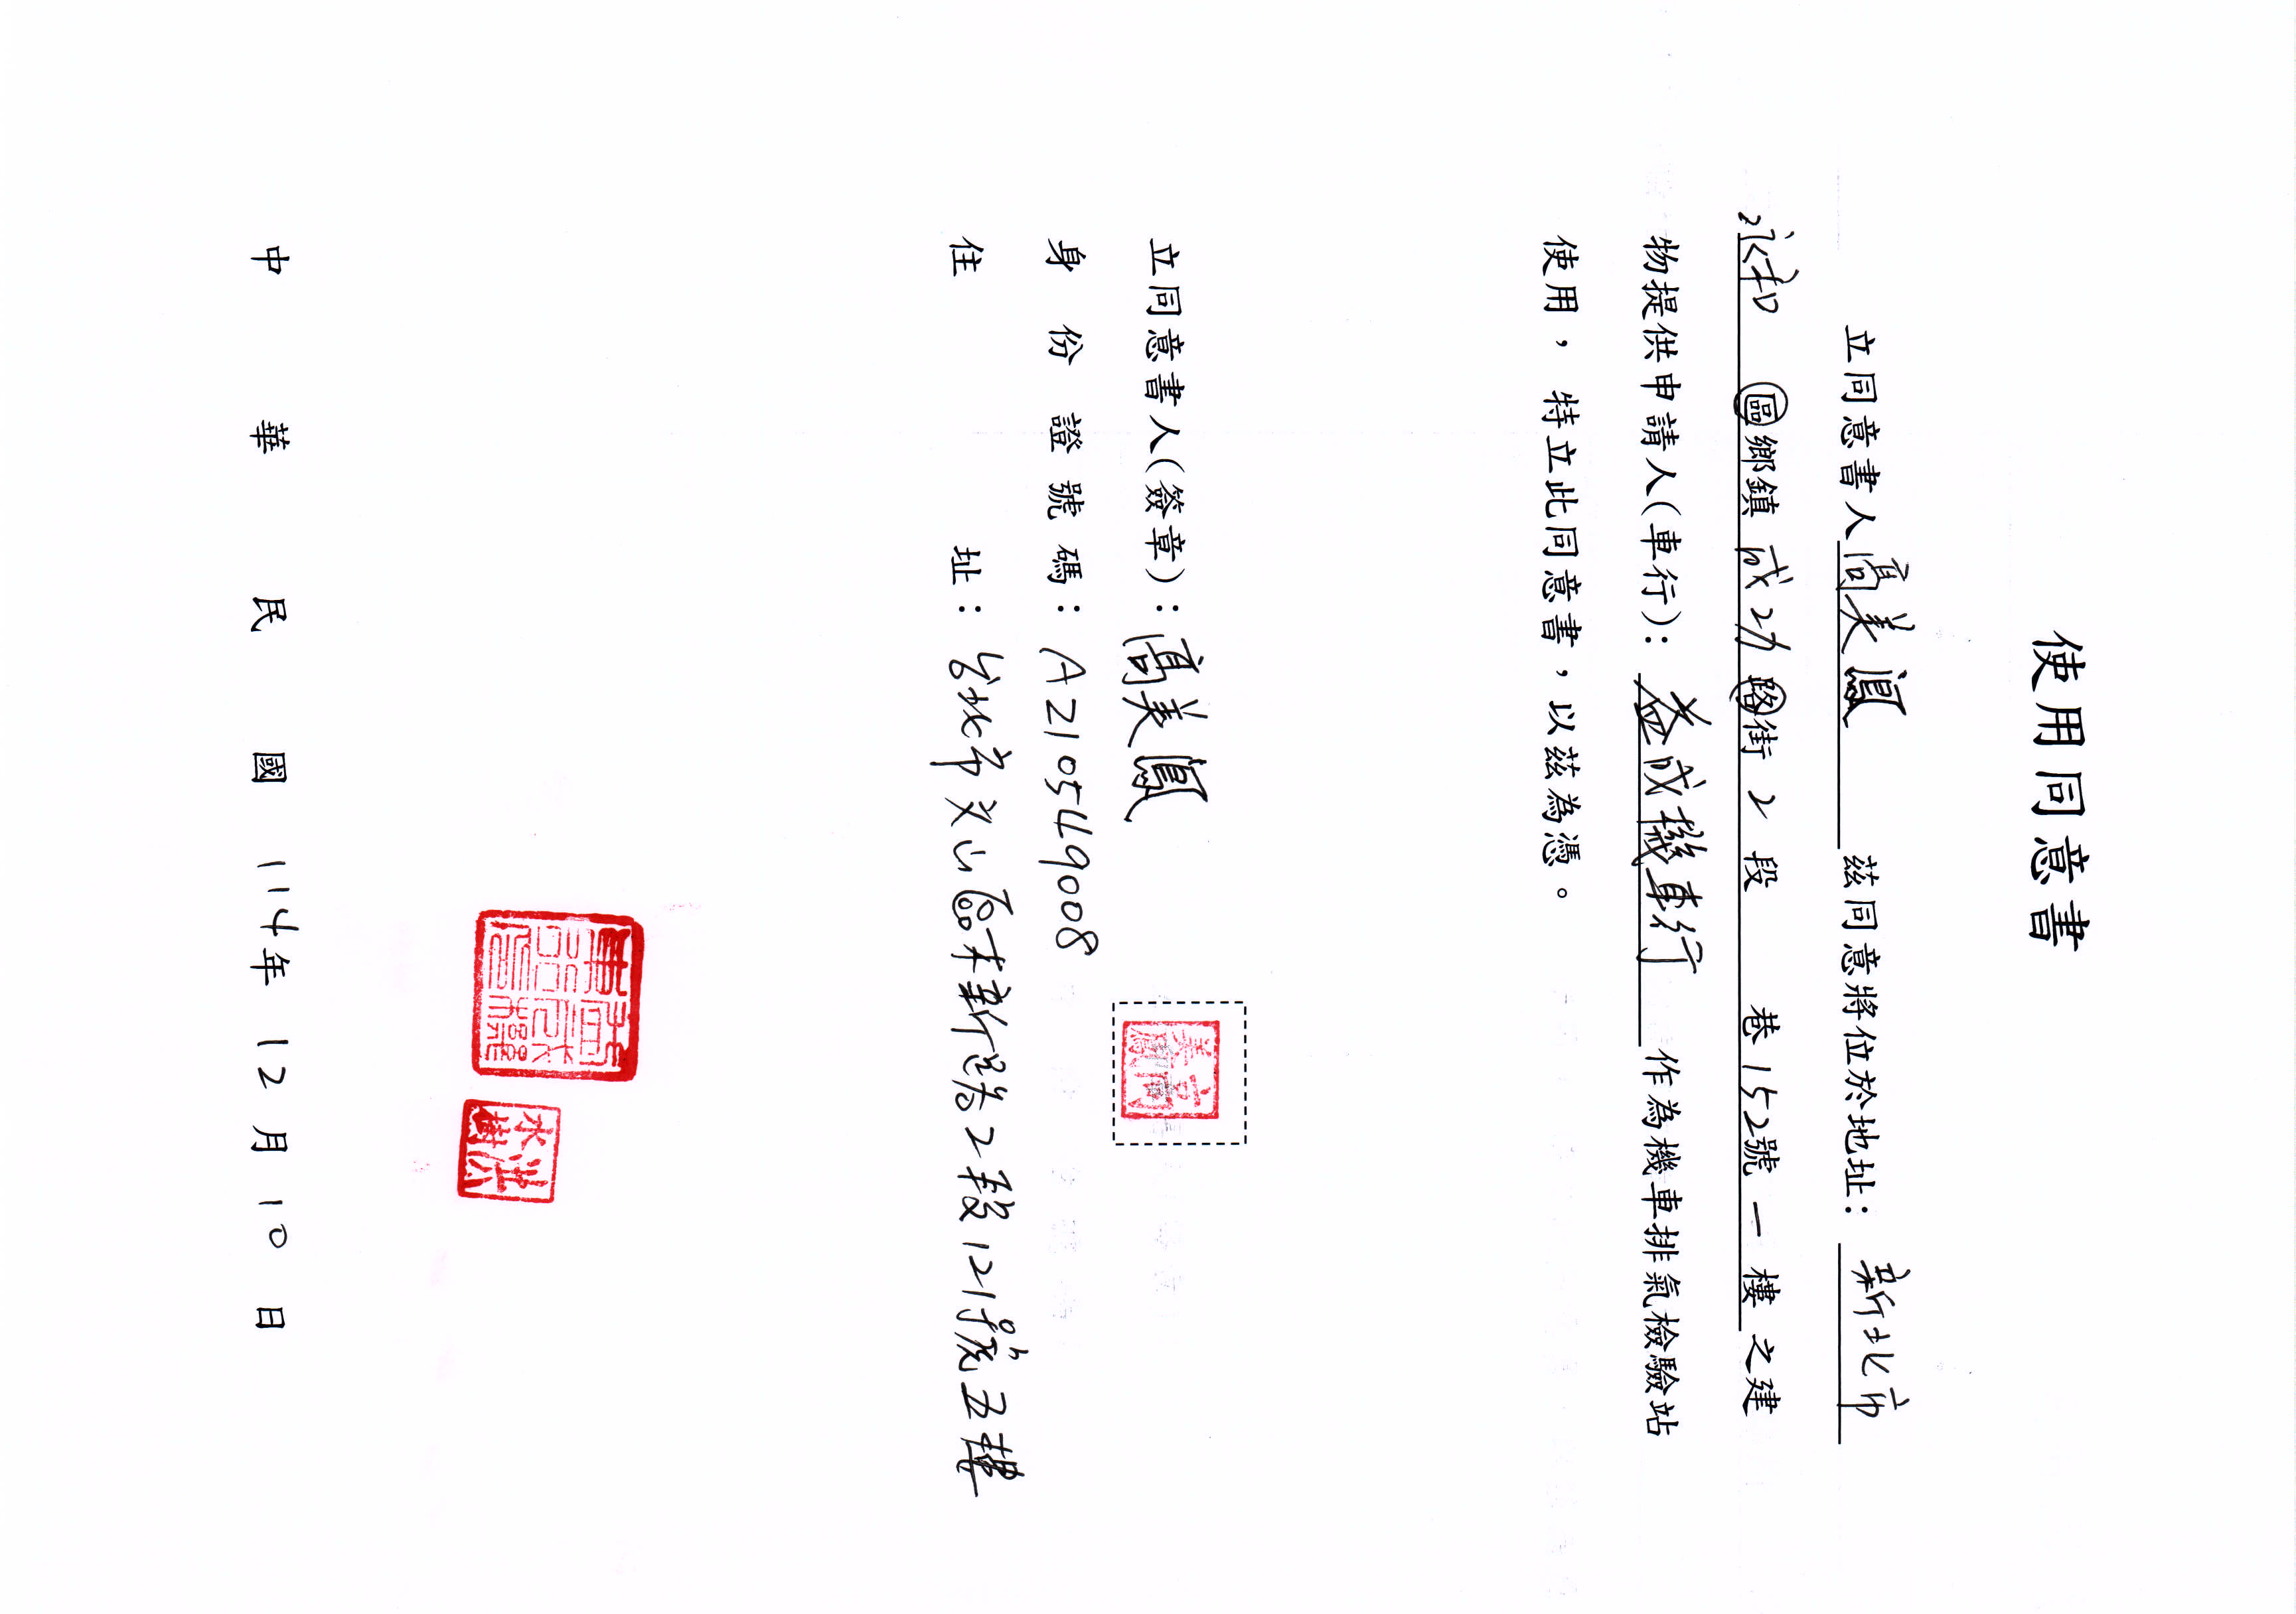 使用同意書
立同意書人高美鳳 茲同意將位於地址：新北市
永和 區鄉鎮 成功 路街 2 段 巷 152號 一 樓 之建
物提供申請人(車行)：益成機車行 作為機車排氣檢驗站
使用，特立此同意書，以茲為憑。
立同意書人(簽章)：高美鳳
身份證號碼：A210549008
住址：台北市文山區木新路2段121號五樓
洪水樹
中華民國 114年 12月 10日